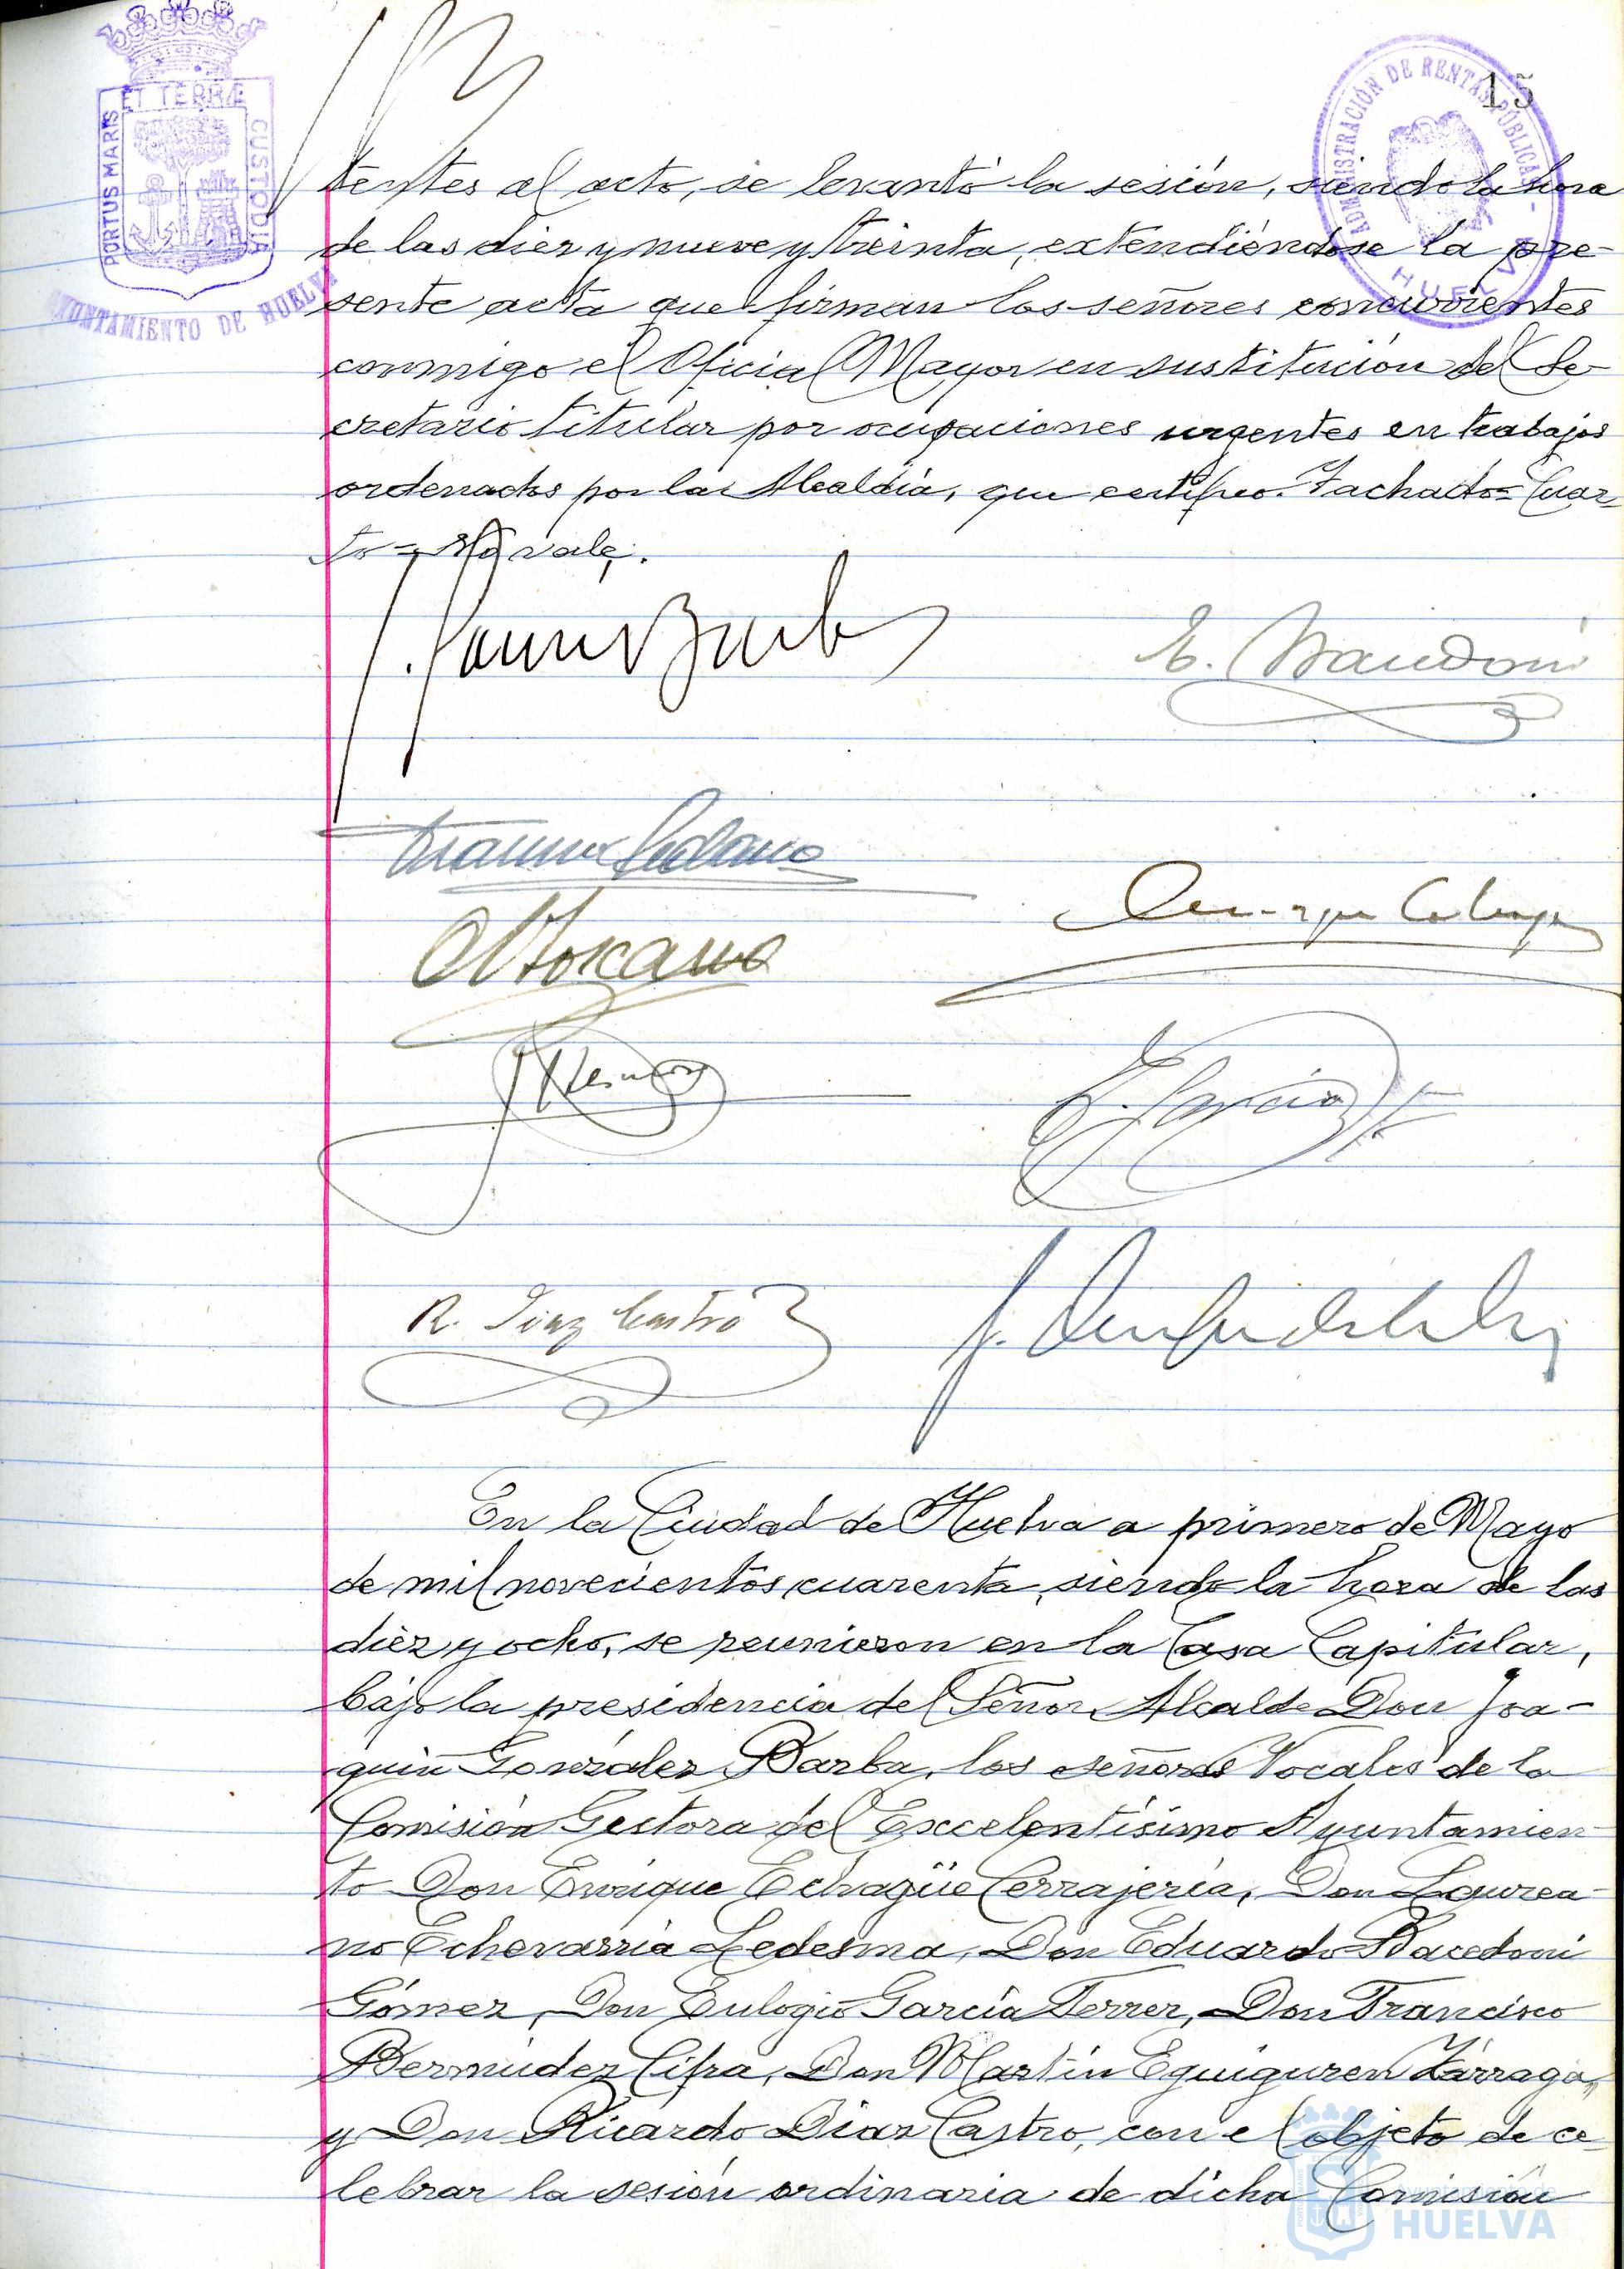 15
PORTUS MARIS ET TERRÆ CUSTODIA
AYUNTAMIENTO DE HUELVA
ADMINISTRACIÓN DE RENTAS PÚBLICAS
HUELVA
tentes al acto, se levantó la sesión, siendo la hora
de las diez y nueve y treinta, extendiéndose la pre-
sente acta que firman los señores concurrentes
conmigo el Oficial Mayor en sustitución del Se-
cretario titular por ocupaciones urgentes en trabajos
ordenados por la Alcaldía, que certifico. Tachado = Cuar-
to = No vale.
R. Diaz Castro
En la Ciudad de Huelva a primero de Mayo
de mil novecientos cuarenta, siendo la hora de las
diez y ocho, se reunieron en la Casa Capitular,
bajo la presidencia del Señor Alcalde Don Joa-
quin González Barba, los señores Vocales de la
Comisión Gestora del Excelentísimo Ayuntamien-
to Don Enrique Echagüe Cerrajería, Don Laurea-
no Echevarría Ledesma, Don Eduardo Bacedoni
Gómez, Don Eulogio García Ferrer, Don Francisco
Bermudez Cifra, Don Martín Eguiguren Zárraga,
y Don Ricardo Diaz Castro, con el objeto de ce-
lebrar la sesión ordinaria de dicha Comisión
HUELVA